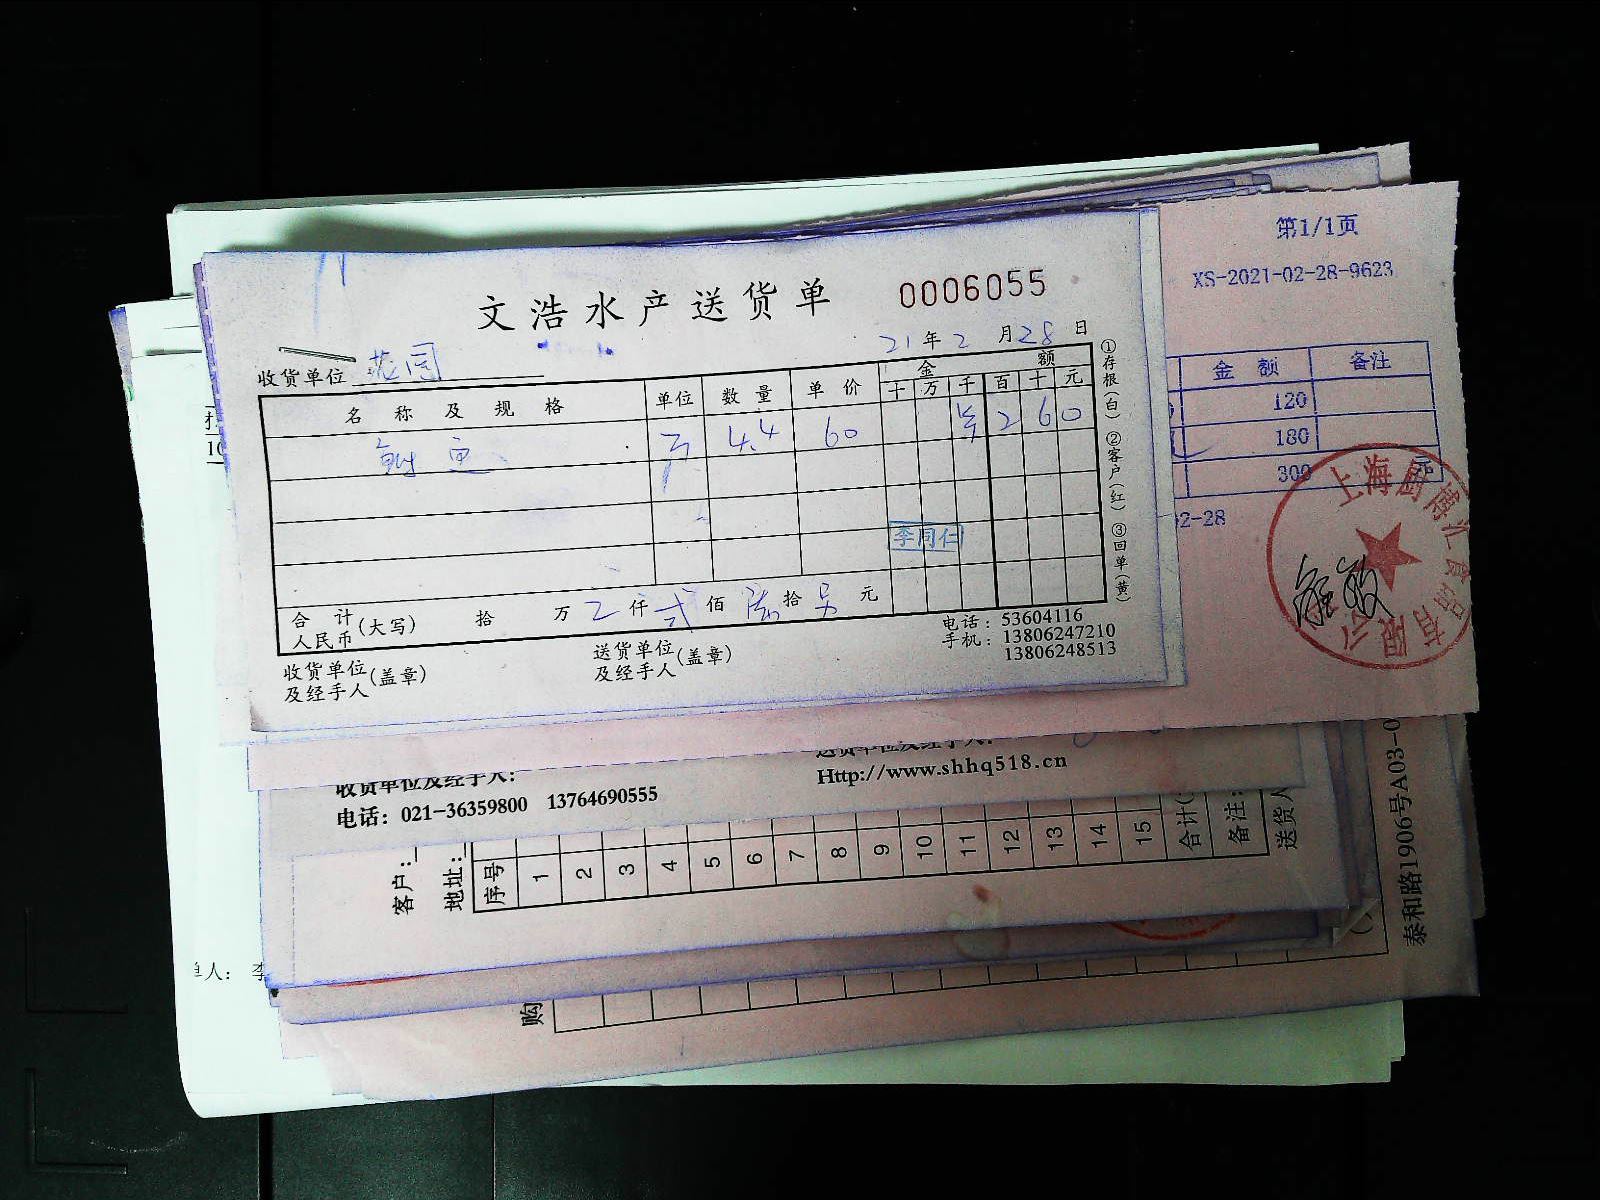 第1/1页
XS-2021-02-28-9623
文浩水产送货单 0006055
21年2月28日
收货单位 花园
名称及规格 单位 数量 单价 金额
十 万 千 百 十 元
鱼 4.4 60 2 6 0
李同仁
合计人民币(大写) 拾 万 仟 弍 佰 陆 拾 元
收货单位及经手人(盖章)
送货单位及经手人(盖章)
电话：53604116
手机：13806247210
13806248513
①存根(白) ②客户(红) ③回单(黄)
金额 备注
120
180
300 元
02-28
上海厨博汇食品有限公司
收货单位及经手人：
送货单位及经手人：
Http://www.shhq518.cn
电话：021-36359800 13764690555
客户：
地址：
序号 1 2 3 4 5 6 7 8 9 10 11 12 13 14 15 合计(
备注：
送货人
泰和路1906号A03-0
购
单人： 李
10